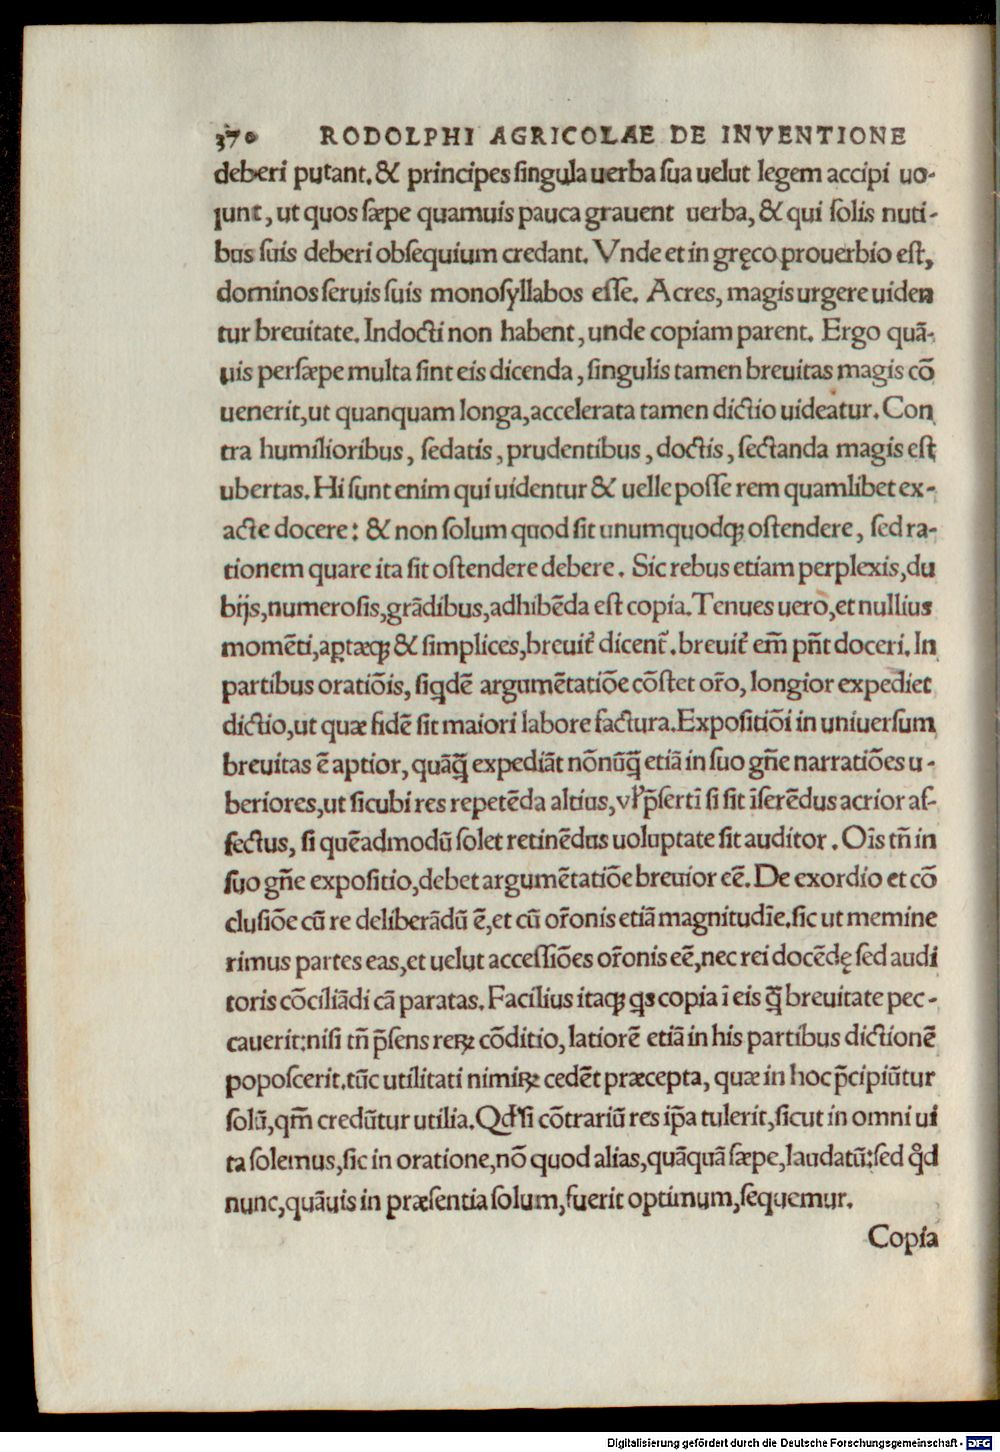 370 RODOLPHI AGRICOLAE DE INVENTIONE
deberi putant. & principes ſingula uerba ſua uelut legem accipi uo-
lunt, ut quos ſæpe quamuis pauca grauent uerba, & qui ſolis nuti-
bus ſuis deberi obſequium credant. Vnde et in gręco prouerbio eſt,
dominos ſeruis ſuis monoſyllabos eſſe. Acres, magis urgere uiden
tur breuitate. Indocti non habent, unde copiam parent. Ergo quā-
uis perſæpe multa ſint eis dicenda, ſingulis tamen breuitas magis cō
uenerit, ut quanquam longa, accelerata tamen dictio uideatur. Con
tra humilioribus, ſedatis, prudentibus, doctis, ſectanda magis eſt
ubertas. Hi ſunt enim qui uidentur & uelle poſſe rem quamlibet ex-
acte docere: & non ſolum quod ſit unumquodq; oſtendere, ſed ra-
tionem quare ita ſit oſtendere debere. Sic rebus etiam perplexis, du
bijs, numeroſis, grādibus, adhibēda eſt copia. Tenues uero, et nullius
momēti, aptæq; & ſimplices, breuit᷑ dicent᷑. breuit᷑ em̄ pn̄t doceri. In
partibus oratiōis, ſiqdē argumētatiōe cōſtet or̄o, longior expediet
dictio, ut quæ fidē ſit maiori labore factura. Expoſitiōi in uniuerſum
breuitas ē aptior, quāꝗ̄ expediāt nōnūꝗ̄ etiā in ſuo gn̄e narratiōes u-
beriores, ut ſicubi res repetēda altius, vł p̄ſertī ſi ſit īſerēdus acrior af-
fectus, ſi quēadmodū ſolet retinēdus uoluptate ſit auditor. Oīs tn̄ in
ſuo gn̄e expoſitio, debet argumētatiōe breuior eē. De exordio et cō
cluſiōe cū re deliberādū ē, et cū or̄onis etiā magnitudīe. ſic ut memine
rimus partes eas, et uelut acceſſiōes or̄onis eē, nec rei docēdę ſed audi
toris cōciliādi cā paratas. Facilius itaq; qs copia ī eis ꝗ̄ breuitate pec-
cauerit: niſi tn̄ p̄ſens reꝝ cōditio, latiorē etiā in his partibus dictionē
popoſcerit. tūc utilitati nimiꝝ cedēt præcepta, quæ in hoc p̄cipiūtur
ſolū, qm̄ credūtur utilia. Qđſi cōtrariū res ip̄a tulerit, ſicut in omni ui
ta ſolemus, ſic in oratione, nō quod alias, quāquā ſæpe, laudatū: ſed qͥd
nunc, quāuis in præſentia ſolum, fuerit optimum, ſequemur.
Copia
Digitalisierung gefördert durch die Deutsche Forschungsgemeinschaft - DFG